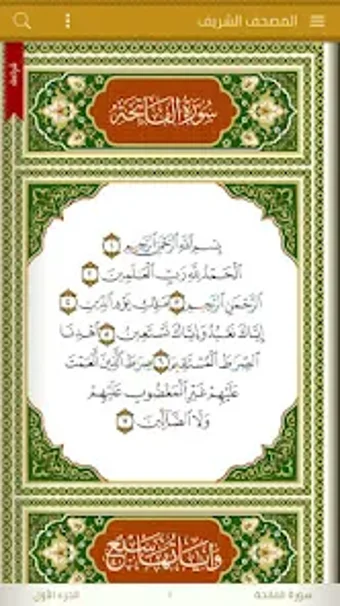 المصحف الشريف
قراءة
سُورَةُ الفَاتِحَةِ
بِسْمِ اللَّهِ الرَّحْمَٰنِ الرَّحِيمِ ١
الْحَمْدُ لِلَّهِ رَبِّ الْعَالَمِينَ ٢
الرَّحْمَٰنِ الرَّحِيمِ ٣ مَالِكِ يَوْمِ الدِّينِ ٤
إِيَّاكَ نَعْبُدُ وَإِيَّاكَ نَسْتَعِينُ ٥ اهْدِنَا
الصِّرَاطَ الْمُسْتَقِيمَ ٦ صِرَاطَ الَّذِينَ أَنْعَمْتَ
عَلَيْهِمْ غَيْرِ الْمَغْضُوبِ عَلَيْهِمْ
وَلَا الضَّالِّينَ ٧
وآياتها سبع
سورة الفاتحة ١ الجزء الأول